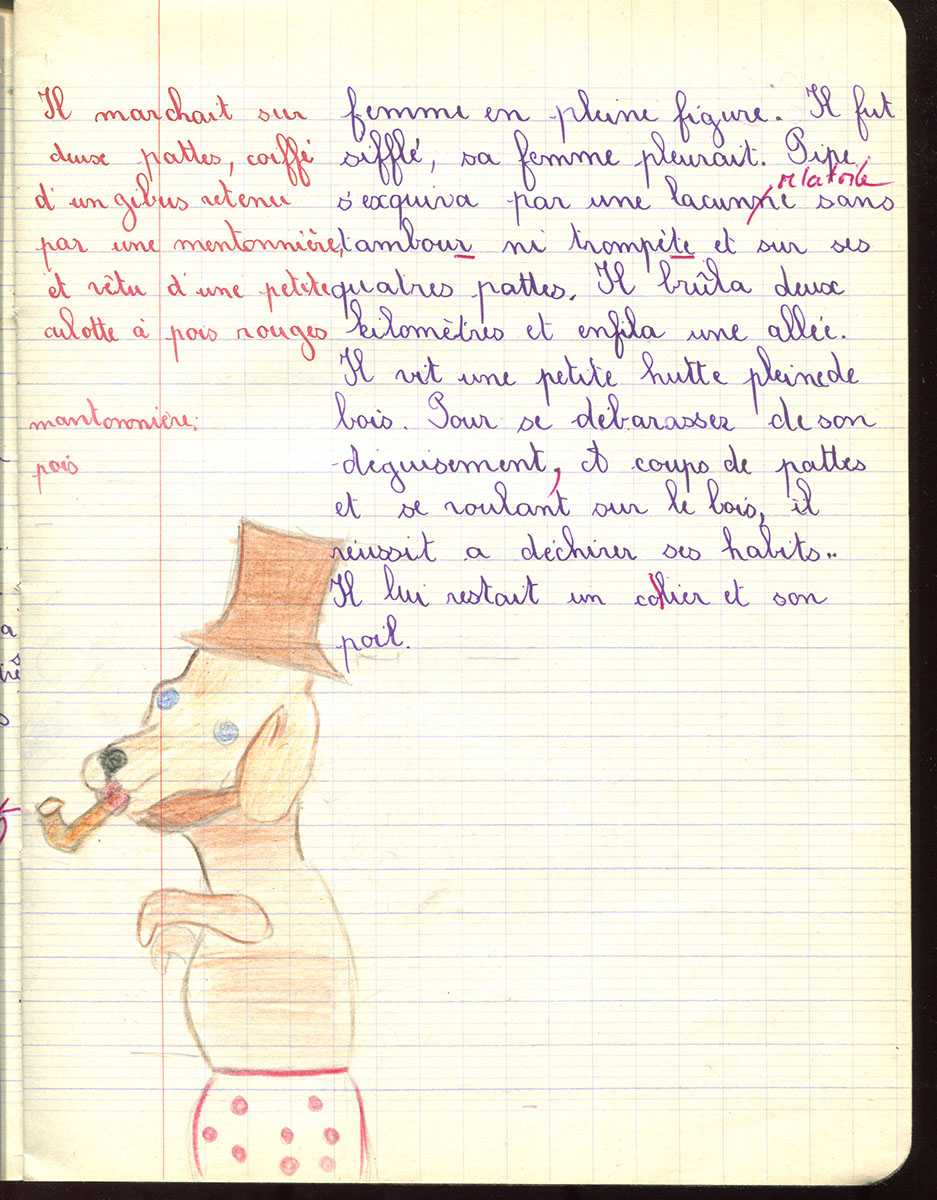 Il marchait sur
deux pattes, coiffé
d'un gibus retenu
par une mentonnière,
et vêtu d'une petite
culotte à pois rouges
mantonnière,
pois
femme en pleine figure. Il fut
sifflé, sa femme pleurait. Pipe
s'exquiva par une lacunne sans
de la toile
tambour ni trompète et sur ses
quatres pattes. Il brûla deux
kilomètres et enfila une allée.
Il vit une petite hutte pleine de
bois. Pour se débarasser de son
déguisement, A coups de pattes
et se roulant sur le bois, il
réussit a déchirer ses habits..
Il lui restait un collier et son
poil.